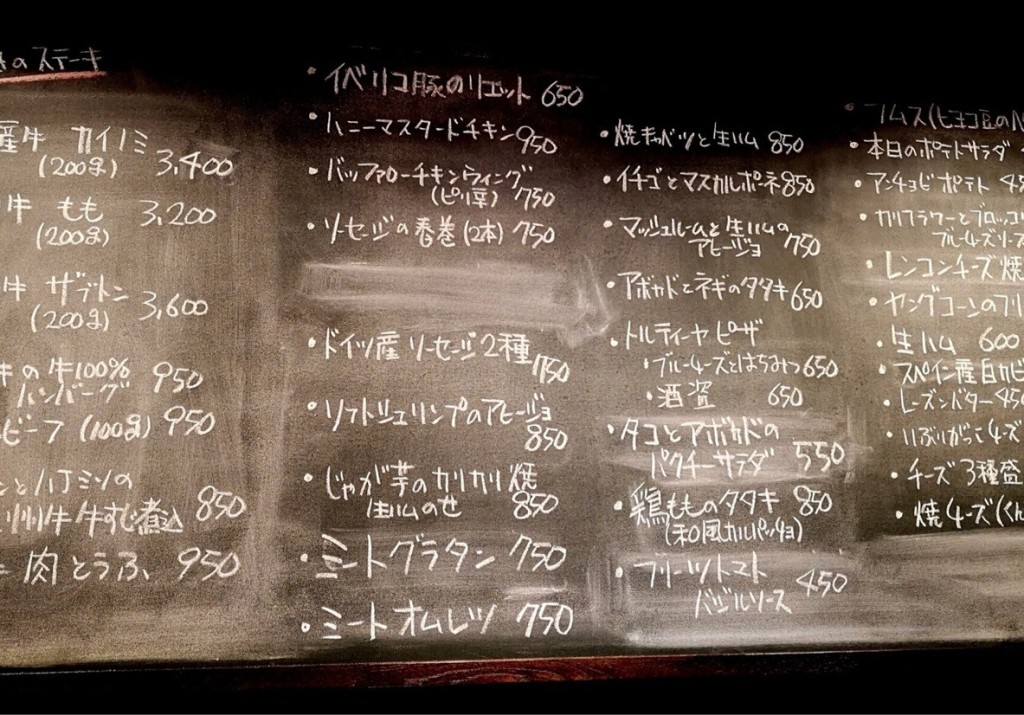 のステーキ
産牛 カイノミ
(200g) 3,400
牛 もも 3,200
(200g)
牛 ザブトン
(200g) 3,600
キの牛100% 950
ハンバーグ
ビーフ (100g) 950
とハチミツの
州牛 牛すじ煮 850
肉とうふ 950
・イベリコ豚のリエット 650
・ハニーマスタードチキン 950
・バッファローチキンウィング
(ピリ辛) 750
・ソーセージの春巻 (2本) 750
・ドイツ産ソーセージ2種
1150
・ソフトシュリンプのアヒージョ
850
・じゃが芋のカリカリ焼
生ハムのせ 850
・ミートグラタン 750
・ミートオムレツ 750
・焼キャベツと生ハム 850
・イチゴとマスカルポーネ 850
・マッシュルームと生ハムの
アヒージョ 750
・アボカドとネギのタタキ 650
・トルティーヤ ピザ
・ブルーチーズとはちみつ 650
・酒盗 650
・タコとアボカドの
パクチーサラダ 550
・鶏もものタタキ 850
(和風カルパッチョ)
・フルーツトマト
バジルソース 450
フムス(ヒヨコ豆の
・本日のポテトサラダ
・アンチョビポテト 45
・カリフラワーとブロッコリ
ブルーチーズソース
・レンコンチーズ焼
・ヤングコーンのフリ
・生ハム 600
・スペイン産白カビ
・レーズンバター 450
・いぶりがっこチーズ
・チーズ3種盛
・焼チーズ(くん